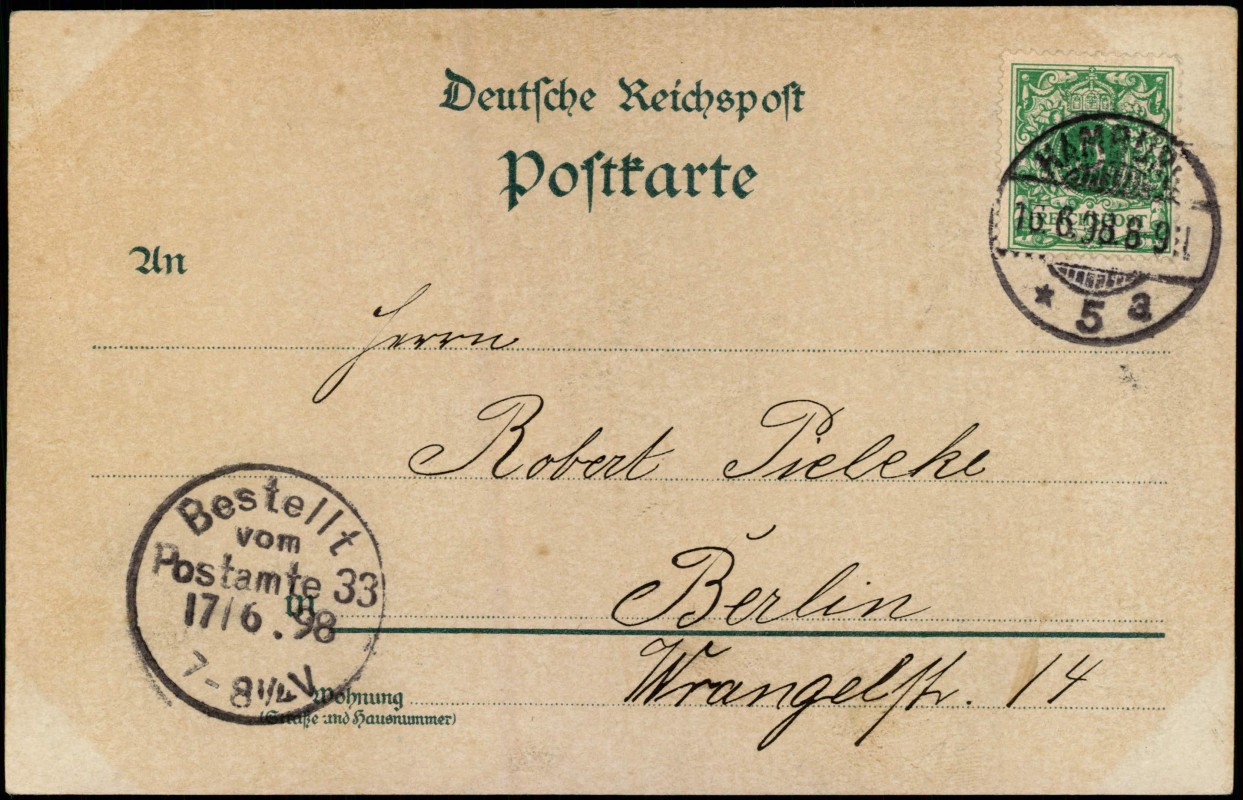 Deutsche Reichspost
Postkarte
An
Herrn
Robert Pielcke
in Berlin
Wrangelstr. 14
Wohnung
(Straße und Hausnummer)
HAMBURG
16.6.98 8-9
* 5 a
REICHSPOST
Bestellt
vom
Postamte 33
17/6.98
7-8¼V